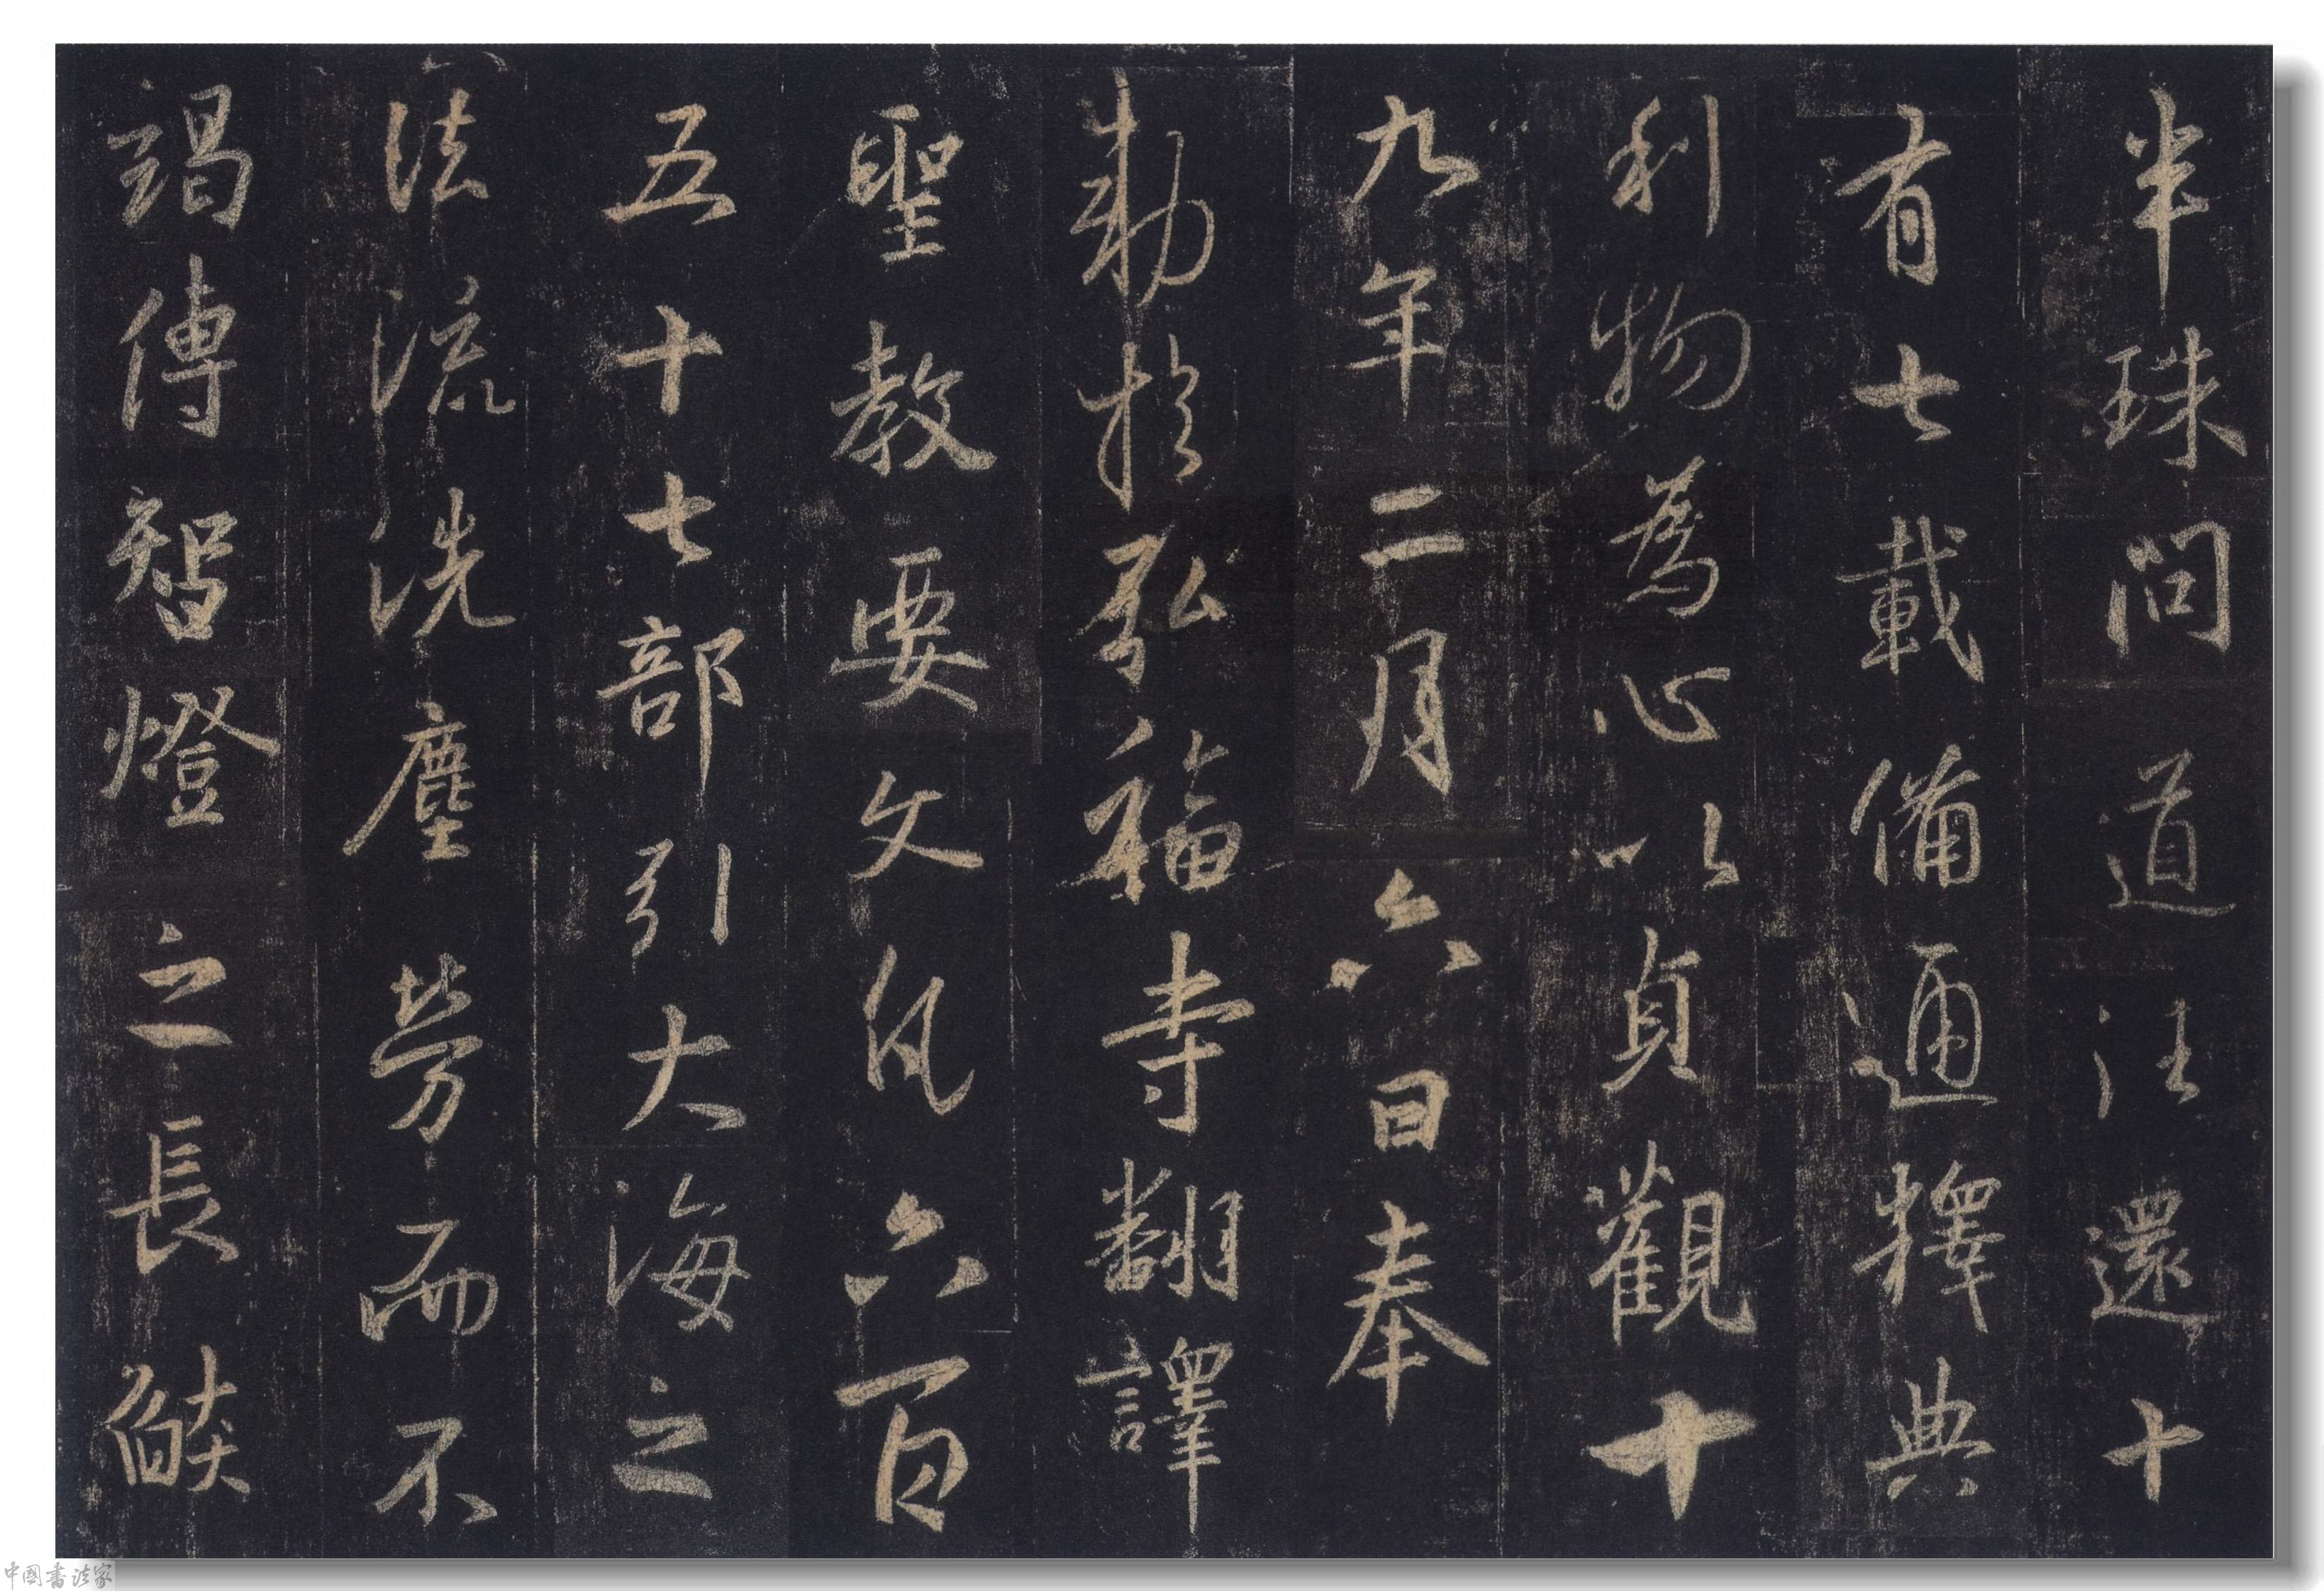 半珠問道往還十
有七載備通釋典
利物為心以貞觀十
九年二月六日奉
勅於弘福寺翻譯
聖教要文凡六百
五十七部引大海之
法流洗塵勞而不
竭傳智燈之長焰
中國書法家